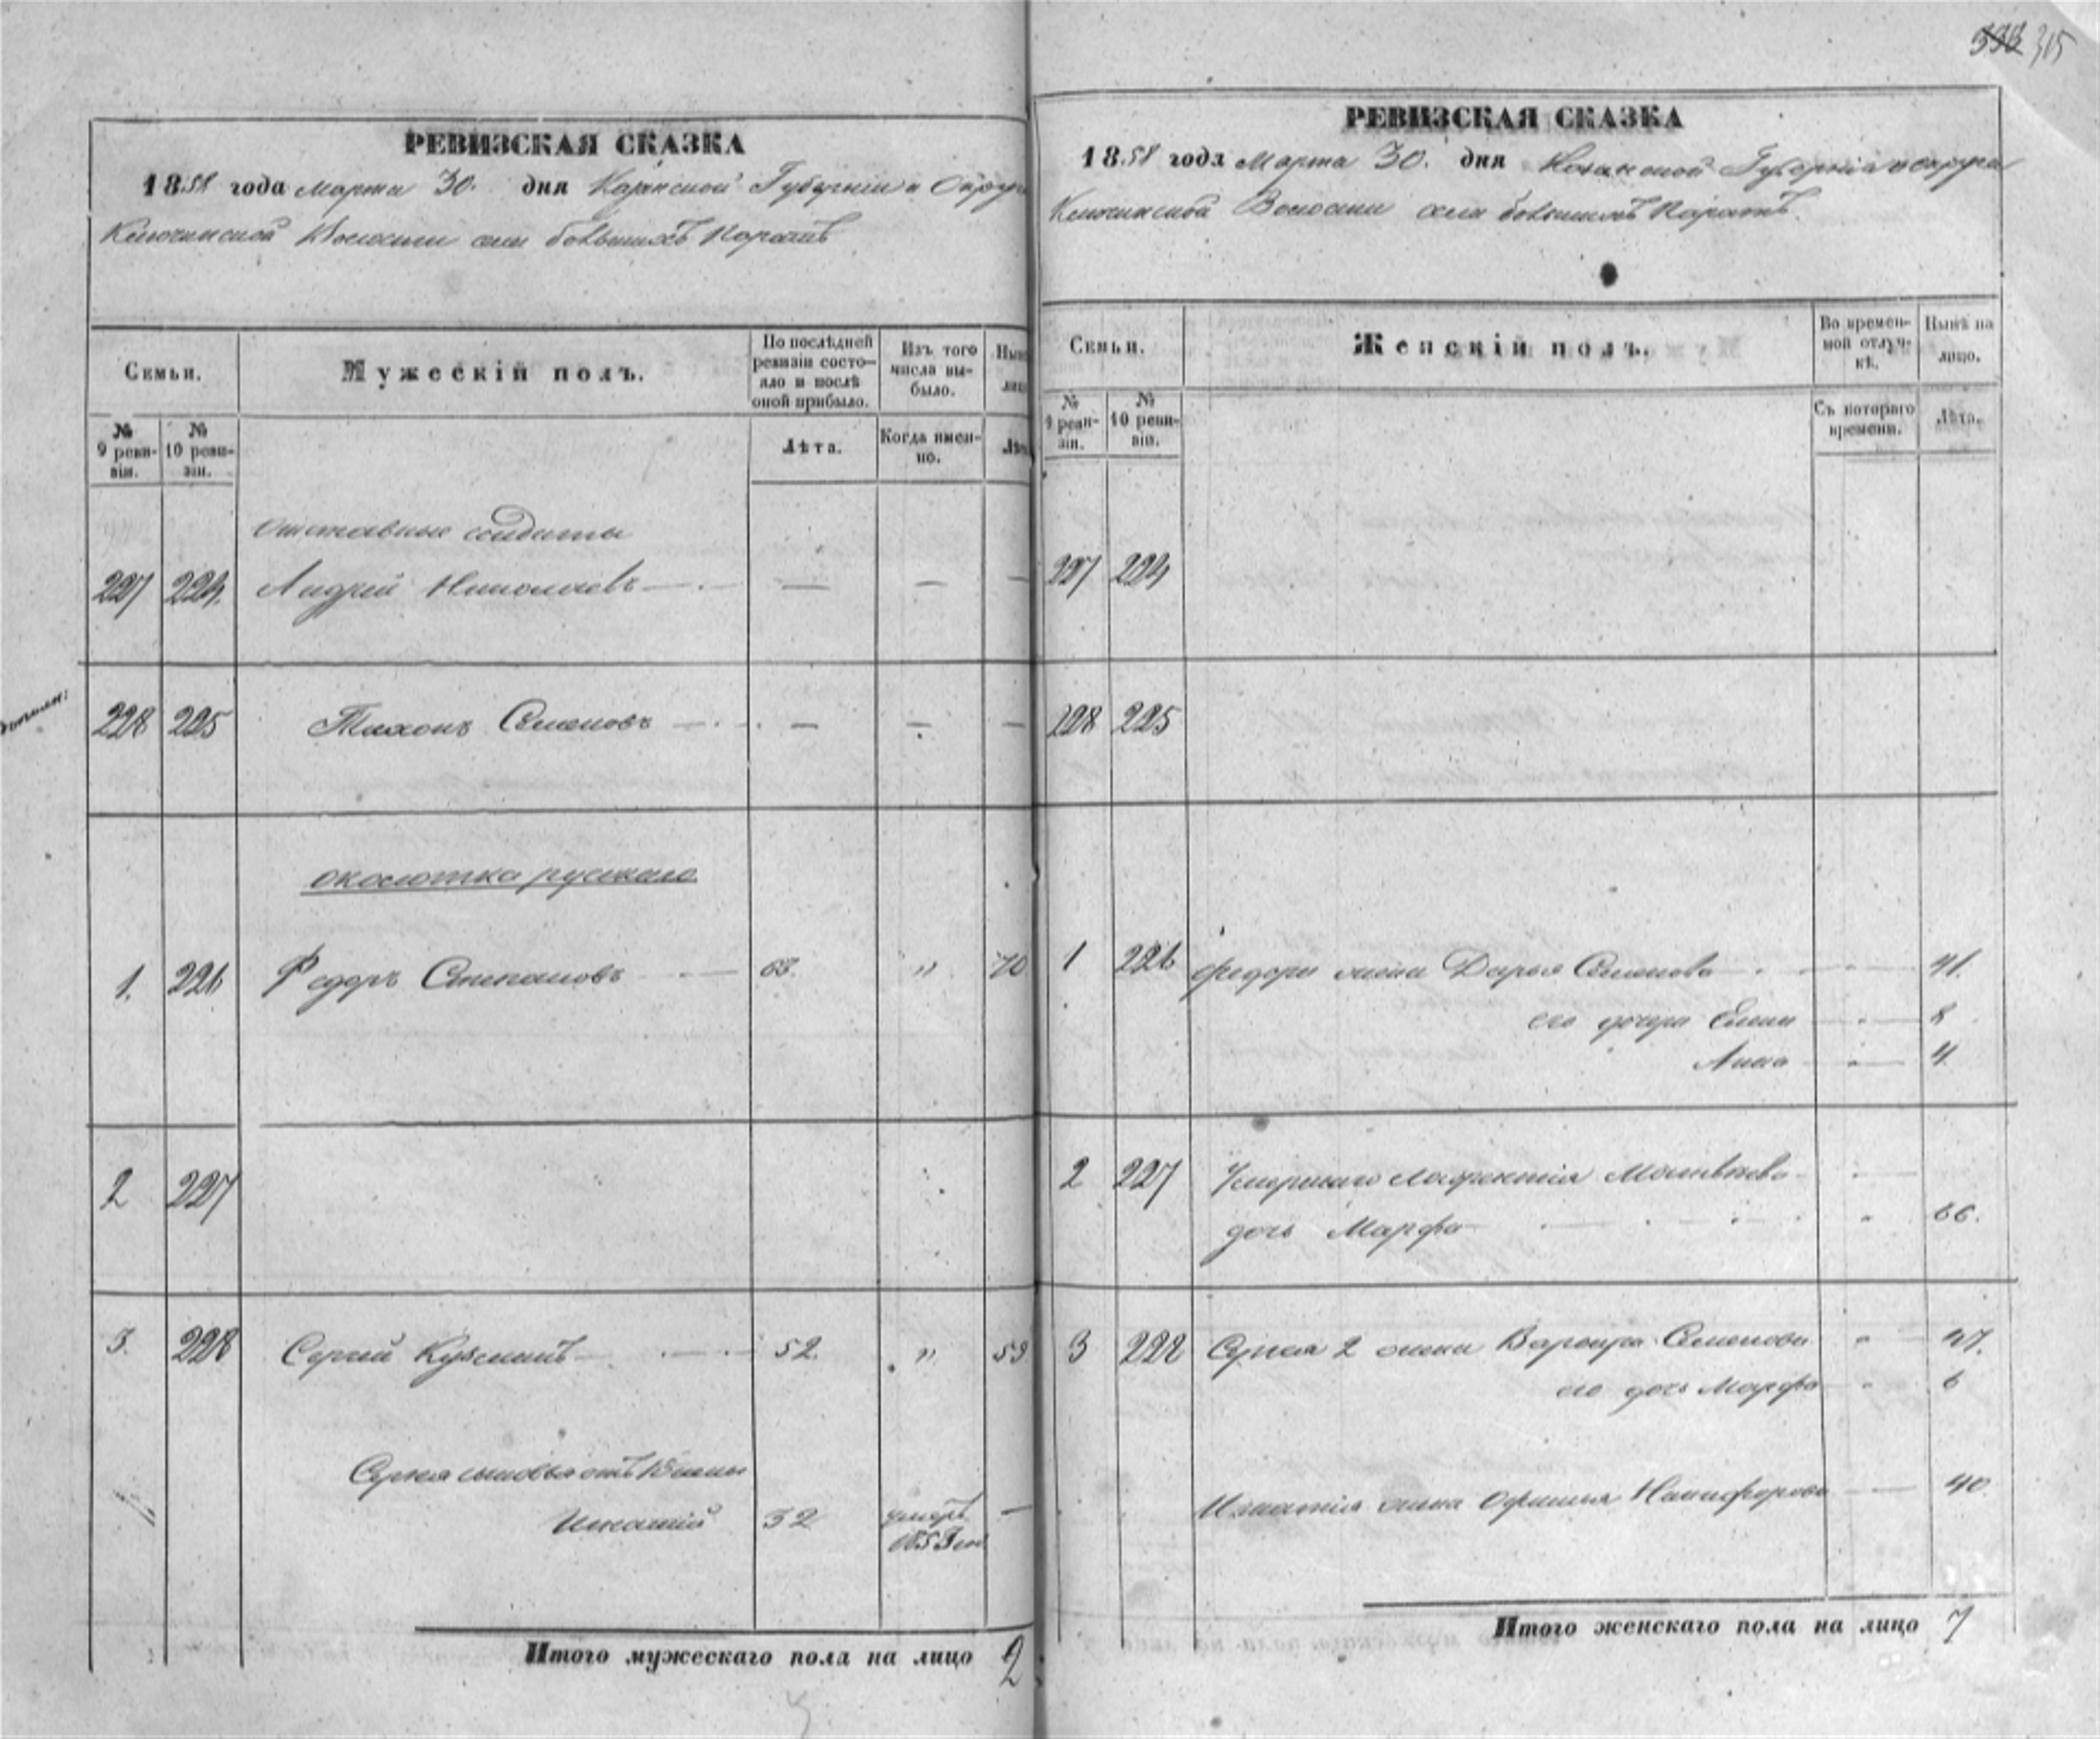 315
РЕВИЗСКАЯ СКАЗКА
1858 года Марта 30. дня Казанской Губерніи и Округа
Ключинской Волости села большихъ Каратъ
Семьи.
Мужескій полъ.
По послѣдней ревизіи состояло и послѣ оной прибыло.
Изъ того числа выбыло.
№ 9 ревизіи.
№ 10 ревизіи.
Лѣта.
Когда именно.
отставные солдаты
227 224. Андрей Николаевъ — — —
228 225 Тихонъ Семеновъ — — —
околотка русскаго
1. 226 Федоръ Степановъ 63. " 70
2 227
3. 228 Сергей Кузминъ 52. " 59
Сергея сыновья отъ 1 жены
Игнатій 32 умеръ —
Итого мужескаго пола на лицо 2
РЕВИЗСКАЯ СКАЗКА
1858 года Марта 30. дня Казанской Губерніи и округа
Ключинской Волости села большихъ Каратъ.
Семьи.
Женскій полъ.
Во временной отлучкѣ.
Нынѣ на лицо.
№ 9 ревизіи.
№ 10 ревизіи.
Съ котораго времени.
Лѣта.
227 224
228 225
1 226 Федора жена Дарья Семенова 41.
его дочери Елена 8
Анна 4
2 227 Умершаго Матвѣева
дочь Марфа 66.
3 228 Сергея 2 жена Варвара Семенова 47.
его дочь Марфа 6
Игнатія жена Офимья Никифорова 40.
Итого женскаго пола на лицо 7